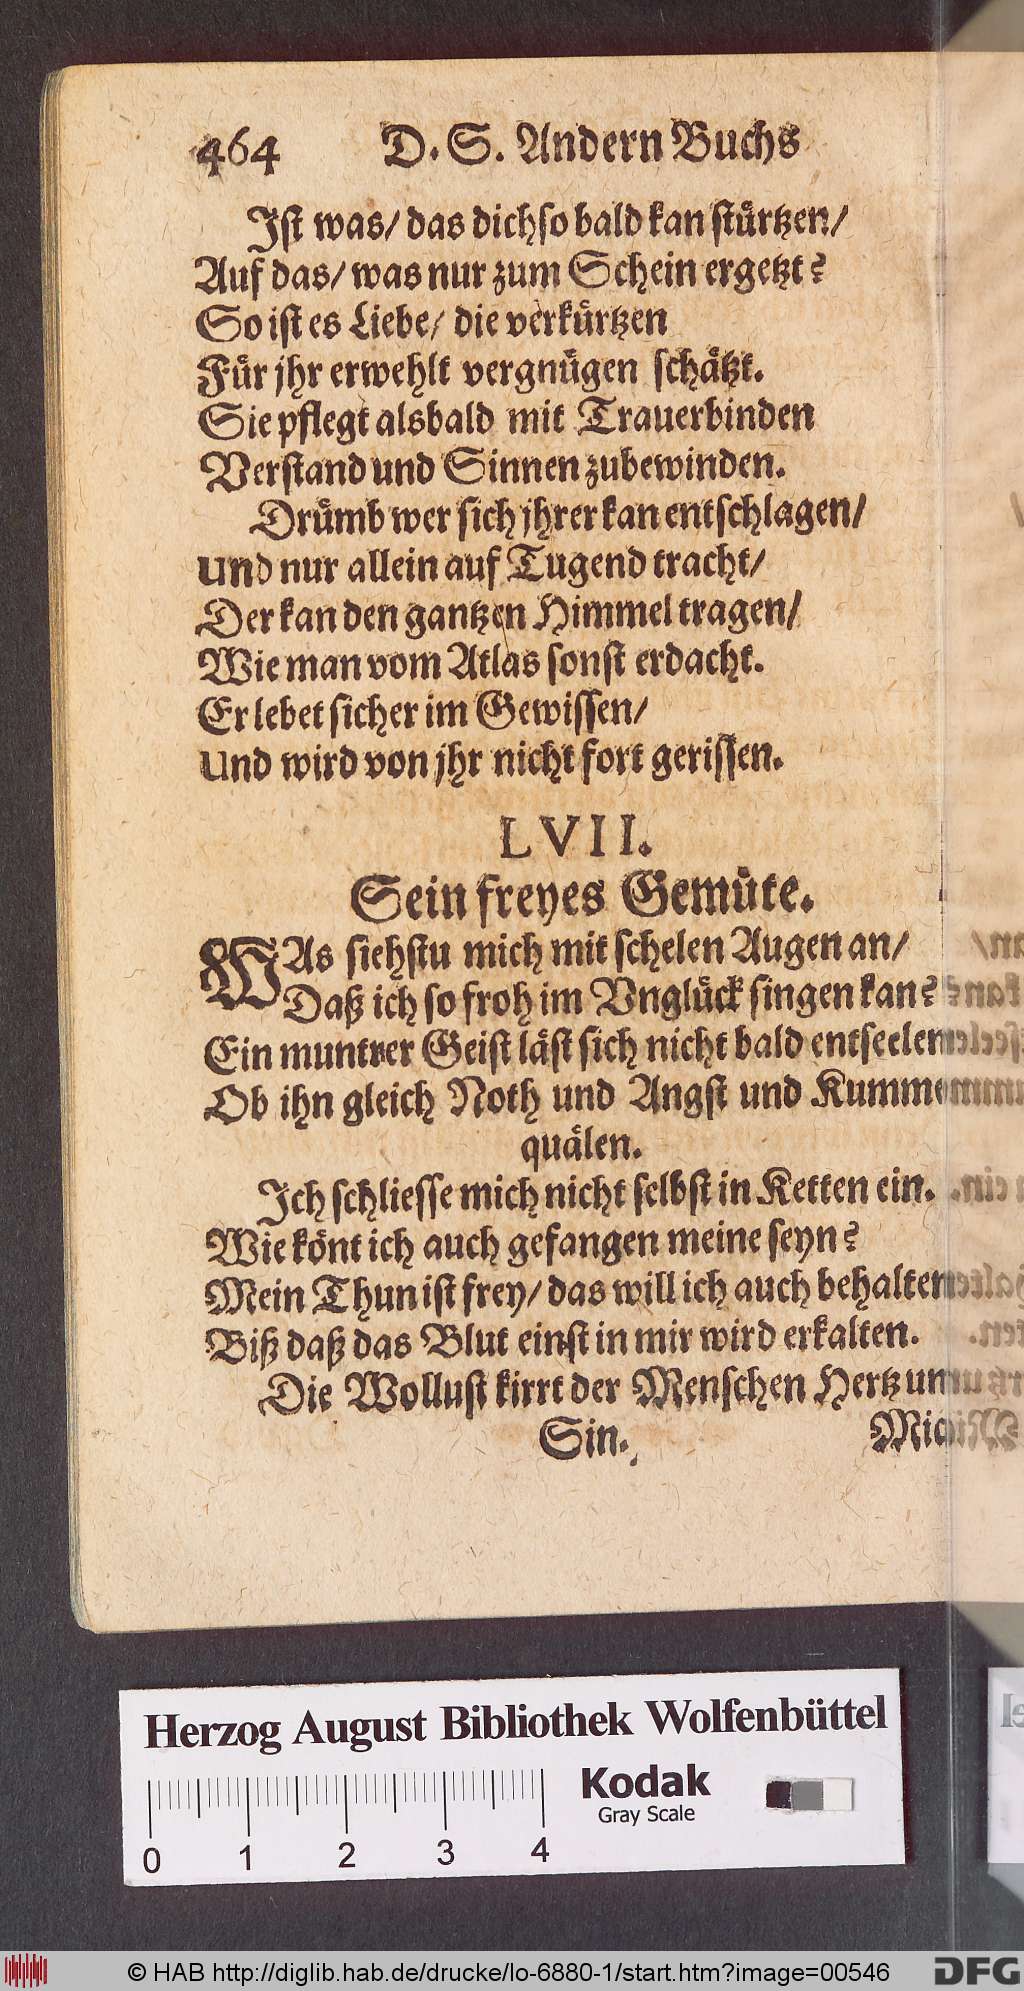 464 D. S. Andern Buchs
Ist was/ das dich so bald kan stürtzen/
Auf das/ was nur zum Schein ergetzt?
So ist es Liebe/ die verkürtzen
Für jhr erwehlt vergnügen schätzt.
Sie pflegt alsbald mit Trauerbinden
Verstand und Sinnen zubewinden.
Drümb wer sich jhrer kan entschlagen/
und nur allein auf Tugend tracht/
Der kan den gantzen Himmel tragen/
Wie man vom Atlas sonst erdacht.
Er lebet sicher im Gewissen/
und wird von jhr nicht fort gerissen.
LVII.
Sein freyes Gemüte.
WAs siehstu mich mit schelen Augen an/
Daß ich so froh im Vnglück singen kan?
Ein muntrer Geist läst sich nicht bald entseelen
Ob ihn gleich Noth und Angst und Kumme
quälen.
Ich schliesse mich nicht selbst in Ketten ein.
Wie könt ich auch gefangen meine seyn?
Mein Thun ist frey/ das will ich auch behalten
Biß daß das Blut einst in mir wird erkalten.
Die Wollust kirrt der Menschen Hertz un
Sin. Mi
Herzog August Bibliothek Wolfenbüttel
Kodak
Gray Scale
0 1 2 3 4
© HAB http://diglib.hab.de/drucke/lo-6880-1/start.htm?image=00546 DFG